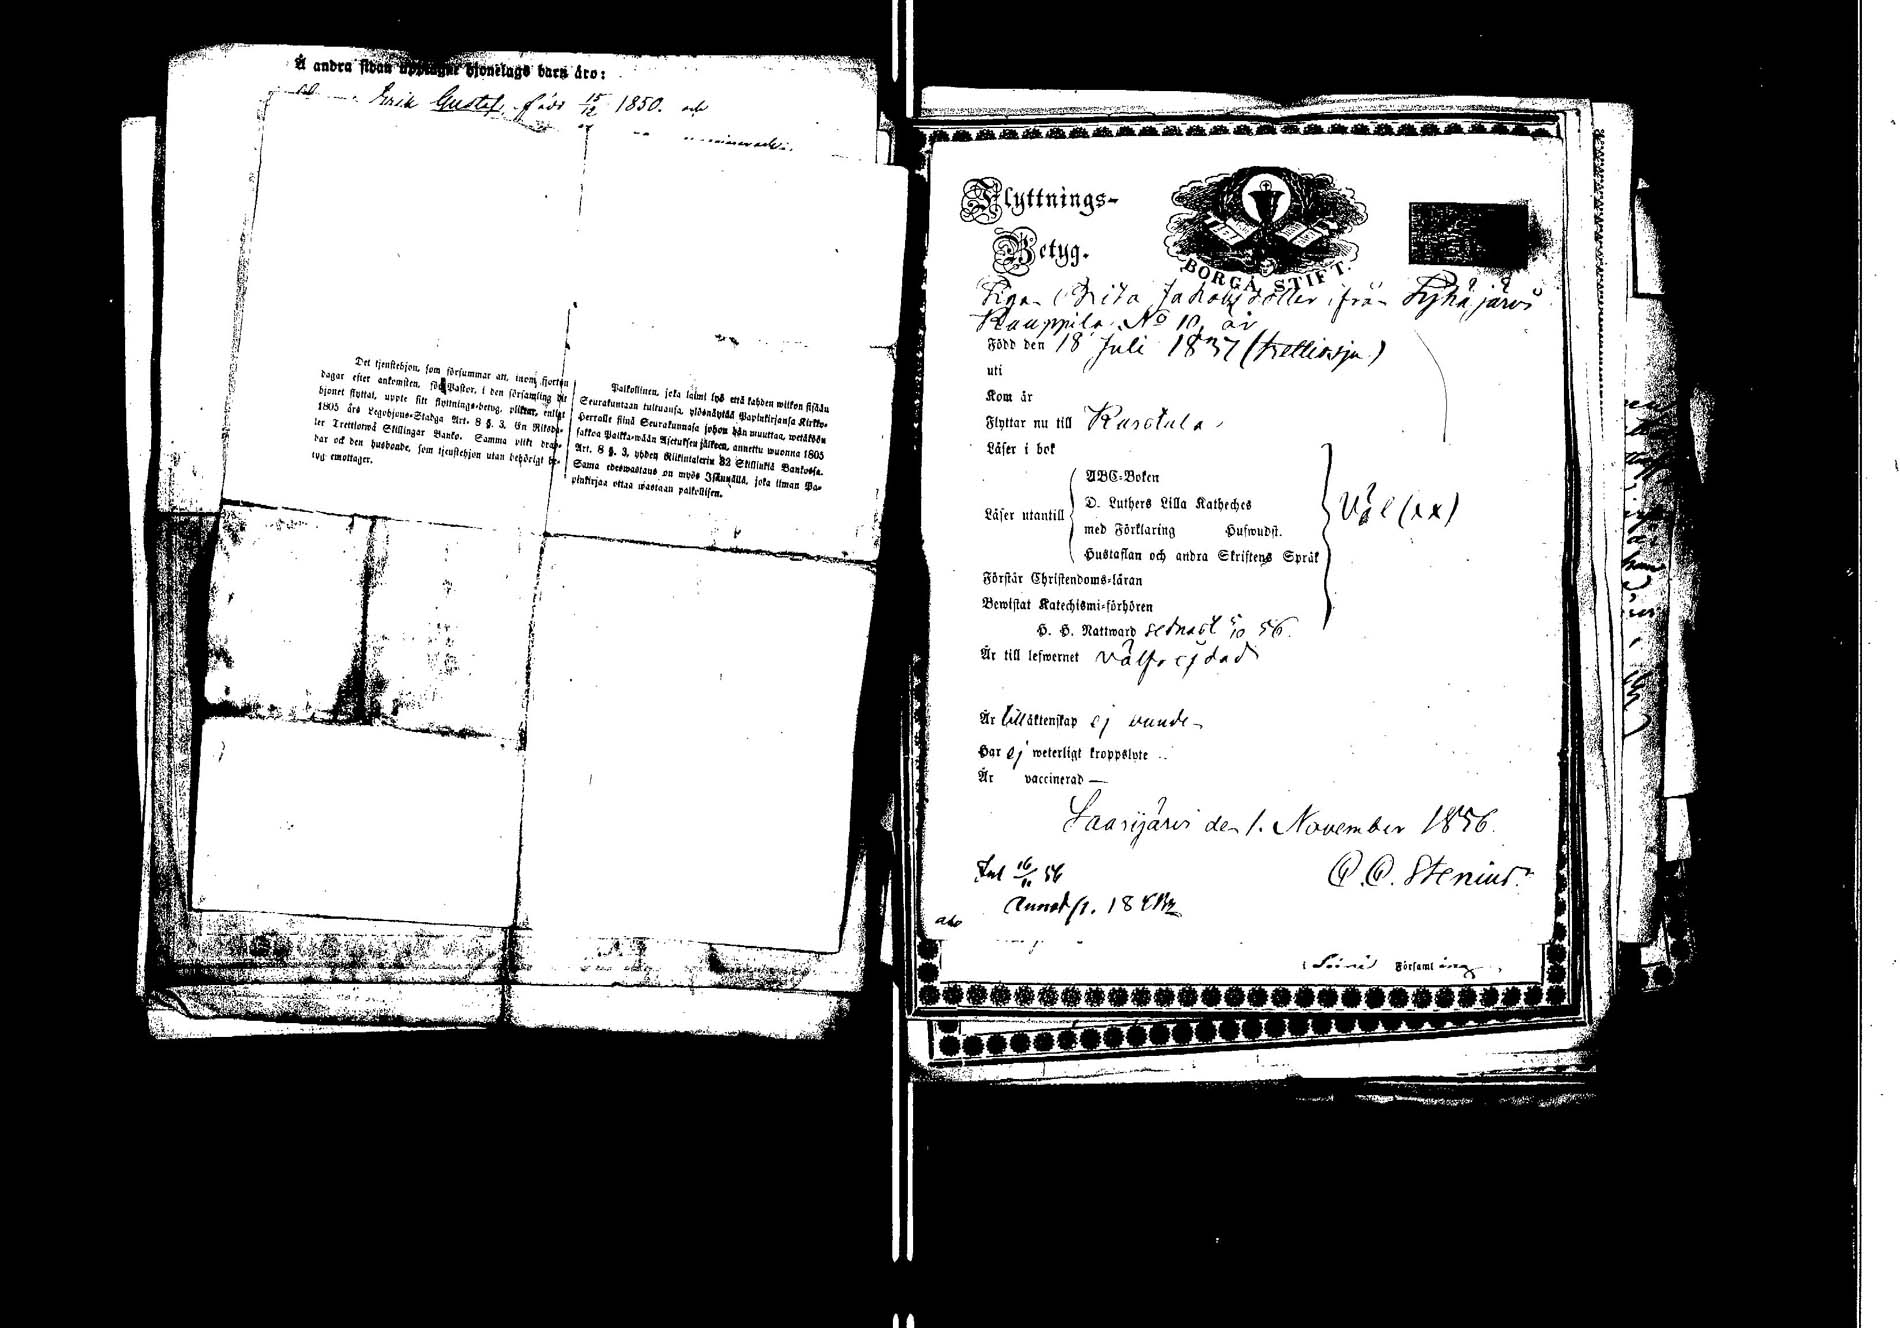 Å andra sidan upptagne hjonelags barn äro:
Erik Gustaf, född 15/12 1850. och
Det tjenstehjon, som försummar att, inom fjorton
dagar efter ankomsten, för Pastor, i den församling dit
hjonet flyttat, uppte sitt flyttnings-betyg, pliktar, enligt
1805 års Legohjons-Stadga Art. 8 §. 3. En Riksda-
ler Trettiotwå Skillingar Banko. Samma plikt dra-
bar ock den husbonde, som tjenstehjon utan behörigt be-
tyg emottager.
Palkollinen, joka laimi lyö että kahden wiikon sisään
Seurakuntaan tultuansa, ylösnäyttää Papinkirjansa Kirkko-
Herralle siinä Seurakunnasa johon hän muuttaa, wetäköön
sakkoa Palkka-wään Asetuksen jälkeen, annettu wuonna 1805
Art. 8 §. 3, yhden Riikintalerin 32 Skillinkiä Bankossa.
Sama edeswastaus on myös Isännällä, joka ilman Pa-
pinkirjaa ottaa wastaan palkollisen.
Flyttnings-
Betyg.
BORGÅ STIFT.
Pigan Brita Jakobsdotter från Pyhäjärvi
Kauppila No 10, är
Född den 18 Juli 1837 (trettiosju)
uti
Kom år
Flyttar nu till Karstula
Läser i bok
Läser utantill
ABC-Boken
D. Luthers Lilla Katheches
med Förklaring Hufwudst.
Hustaflan och andra Skriftens Språk
Väl (xx)
Förstår Christendoms-läran
Bewistat Katechismi-förhören
H. H. Nattward sednast 5/10 56.
Är till lefwernet välfrejdad
Är till äktenskap ej
Har ej weterligt kroppslyte
Är vaccinerad —
Saarijärvi den 1. November 1856.
C. C. Stenius.
Inl 16/11 56
Församling